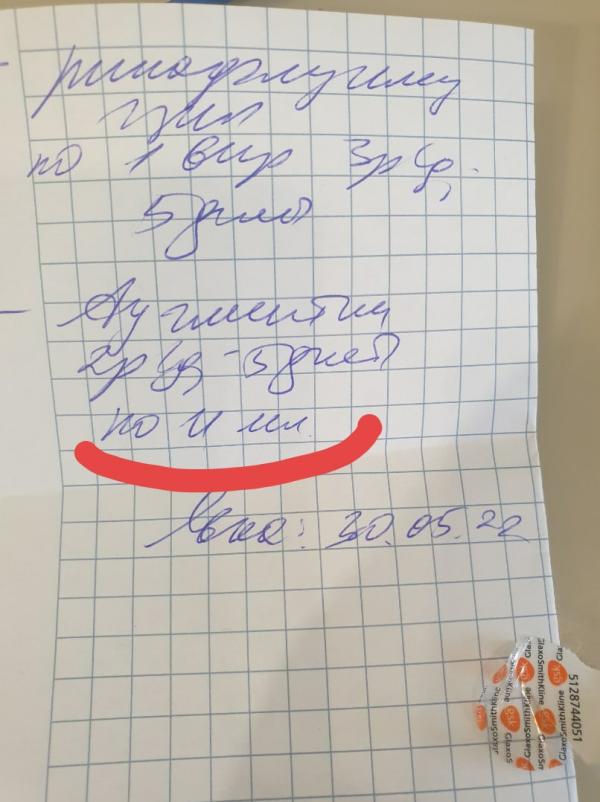 - ринофлуиму
цил
по 1 впр 3р/д.
5 дней
- Аугментин
2р/д - 5 дней
по мл.
Явка: 30.05.22
GlaxoSmithKline
gsk
5128744051